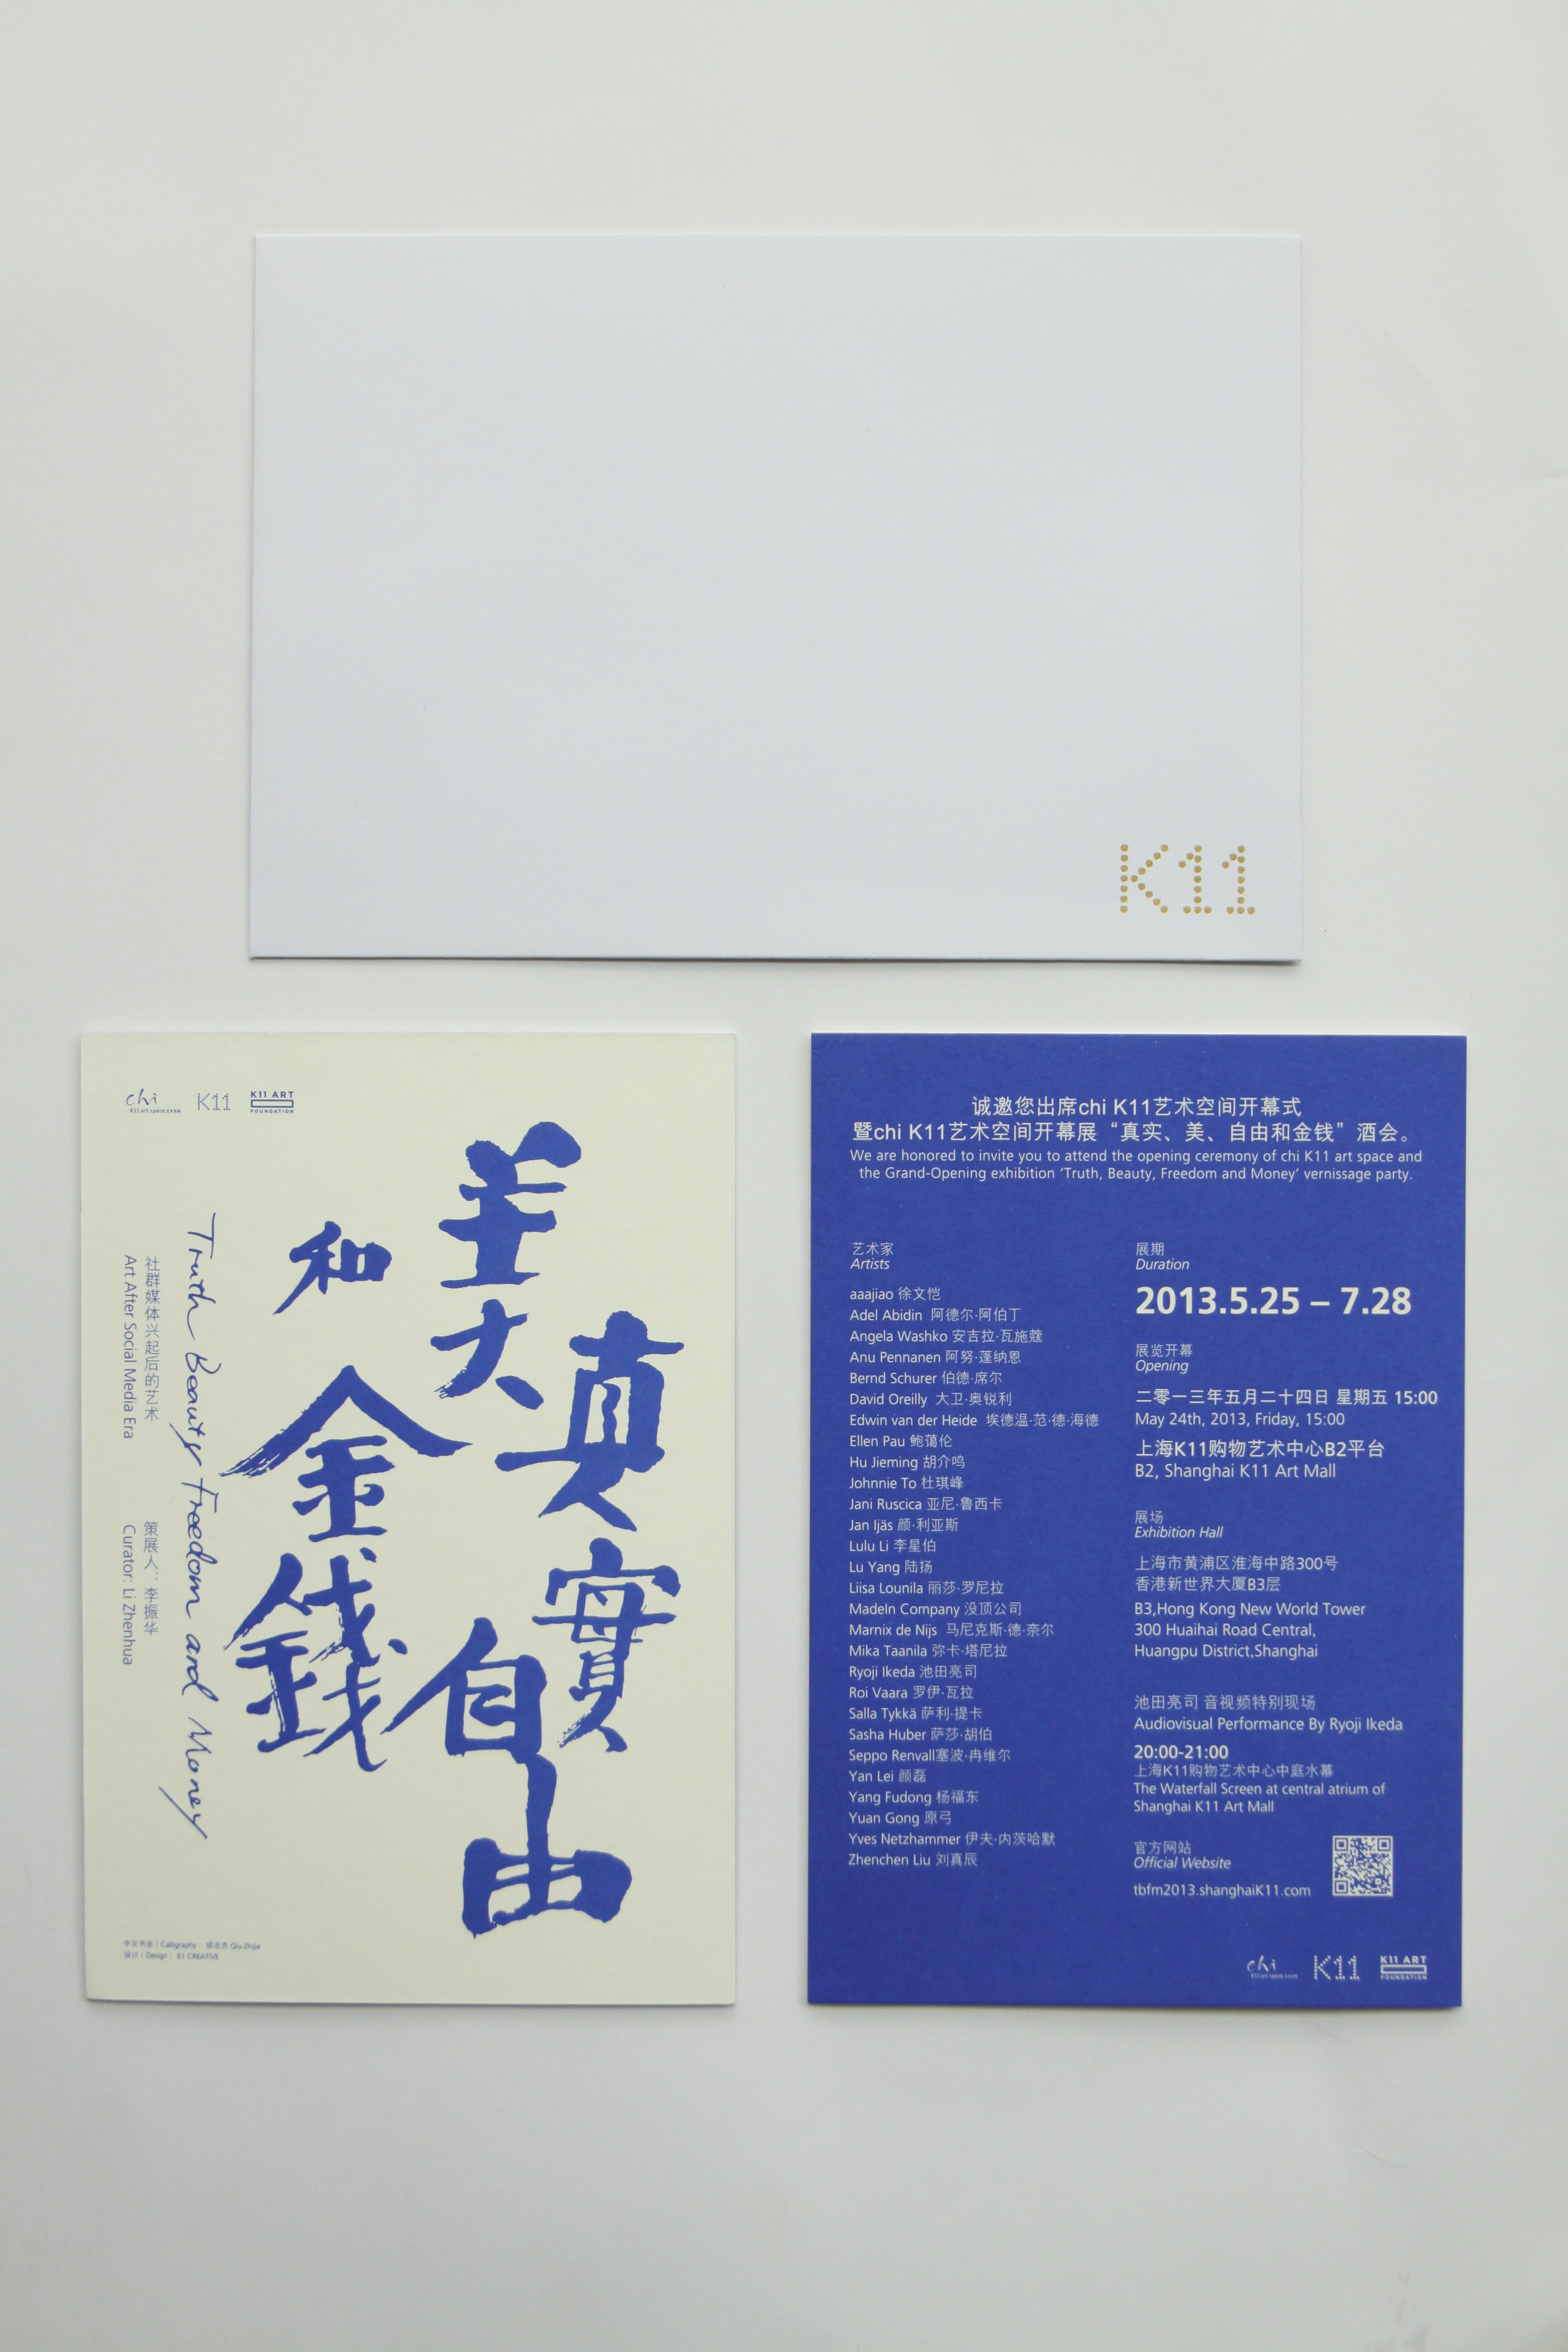 K11
chi
K11 art space 艺术空间
K11
K11 ART
FOUNDATION
真實
美 自由
和 金錢
Truth Beauty Freedom and Money
社群媒体兴起后的艺术
Art After Social Media Era
策展人：李振华
Curator: Li Zhenhua
中文书法 | Calligraphy： 邱志杰 Qiu Zhijie
设计 | Design： 61 CREATIVE
诚邀您出席chi K11艺术空间开幕式
暨chi K11艺术空间开幕展“真实、美、自由和金钱”酒会。
We are honored to invite you to attend the opening ceremony of chi K11 art space and
the Grand-Opening exhibition ‘Truth, Beauty, Freedom and Money’ vernissage party.
艺术家
Artists
aaajiao 徐文恺
Adel Abidin 阿德尔·阿伯丁
Angela Washko 安吉拉·瓦施蔻
Anu Pennanen 阿努·蓬纳恩
Bernd Schurer 伯德·席尔
David Oreilly 大卫·奥锐利
Edwin van der Heide 埃德温·范·德·海德
Ellen Pau 鲍蔼伦
Hu Jieming 胡介鸣
Johnnie To 杜琪峰
Jani Ruscica 亚尼·鲁西卡
Jan Ijäs 颜·利亚斯
Lulu Li 李星伯
Lu Yang 陆扬
Liisa Lounila 丽莎·罗尼拉
MadeIn Company 没顶公司
Marnix de Nijs 马尼克斯·德·奈尔
Mika Taanila 弥卡·塔尼拉
Ryoji Ikeda 池田亮司
Roi Vaara 罗伊·瓦拉
Salla Tykkä 萨利·提卡
Sasha Huber 萨莎·胡伯
Seppo Renvall塞波·冉维尔
Yan Lei 颜磊
Yang Fudong 杨福东
Yuan Gong 原弓
Yves Netzhammer 伊夫·内茨哈默
Zhenchen Liu 刘真辰
展期
Duration
2013.5.25 – 7.28
展览开幕
Opening
二零一三年五月二十四日 星期五 15:00
May 24th, 2013, Friday, 15:00
上海K11购物艺术中心B2平台
B2, Shanghai K11 Art Mall
展场
Exhibition Hall
上海市黄浦区淮海中路300号
香港新世界大厦B3层
B3,Hong Kong New World Tower
300 Huaihai Road Central,
Huangpu District,Shanghai
池田亮司 音视频特别现场
Audiovisual Performance By Ryoji Ikeda
20:00-21:00
上海K11购物艺术中心中庭水幕
The Waterfall Screen at central atrium of
Shanghai K11 Art Mall
官方网站
Official Website
tbfm2013.shanghaiK11.com
chi
K11 art space 艺术空间
K11
K11 ART
FOUNDATION